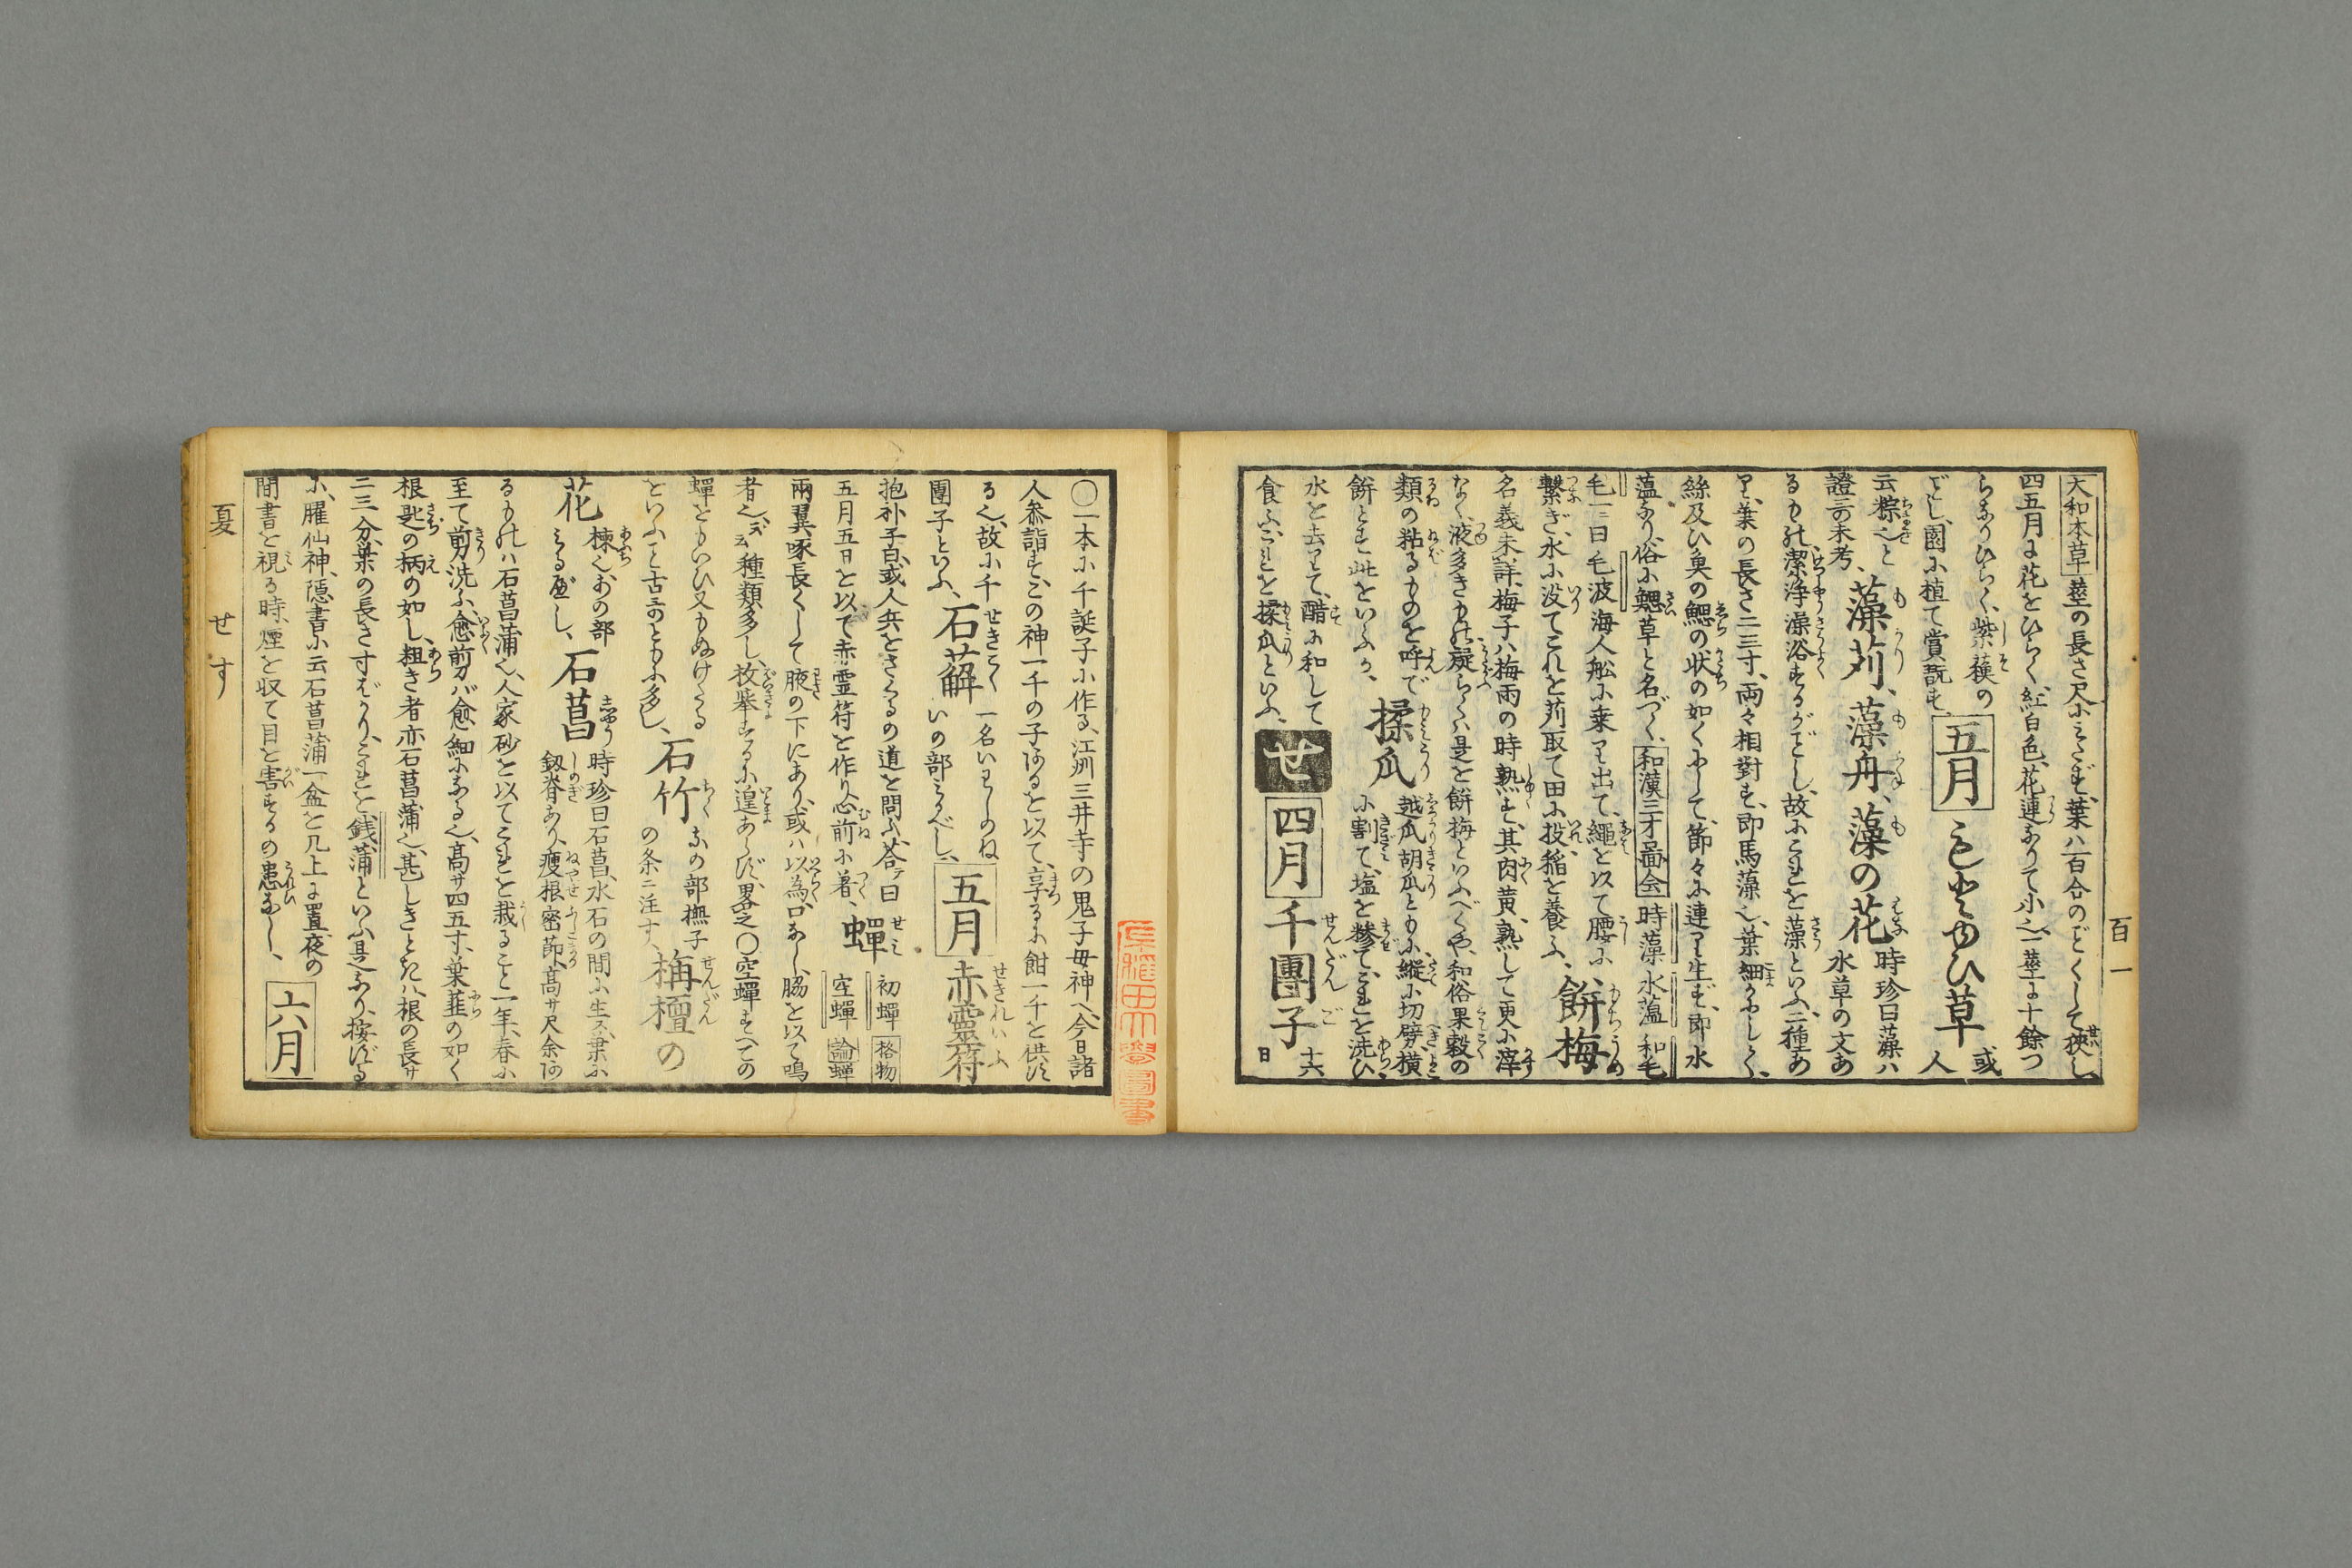 百一
大和本草 莖の長さ尺にみたず、葉ハ百合のごとくして狭し、
四五月に花をひらく、紅白色、花連りて小也、一莖に十餘つ
らなりひらく、紫蘓の
ごとし、園に植て賞翫す、 五月 草 或人
云粽也と
證言未考、 藻刈、藻舟、藻の花 時珍曰藻ハ水草の文あ
るもの、潔浄澡浴するがごとし、故にこれを藻といふ、二種あ
り、葉の長さ二三寸、両々相對す、即馬藻也、葉細かにして、
絲及ひ魚の鰓の状の如くにして、節々に連り生ず、即水
薀なり、俗に鰓草と名づく、 和漢三才圖会 時藻 水薀 和毛
毛 曰 毛波 海人舩に乗り出て、繩を以て腰に
繫ぎ、水に没てこれを苅取て田に投、稲を養ふ、 餅梅
名義未詳、梅子ハ梅雨の時熟す、其肉黄、熟して更に滓
なく、液多きもの、凝らくハ是を餅梅といふべくや、和俗果穀の
類の粘るものを呼んで
餅とす、此をいふか、 揉瓜 越瓜胡瓜ともに縱に切劈、横に割て、塩を糝て、これを洗ひ
水を去りて、醋に和して
食ふ、これを揉瓜といふ、 せ 四月 千團子 十六日
〇一本に千誕子に作る、江州三井寺の鬼子母神へ、今日諸
人参詣す、この神一千の子あるを以て、享るに餅一千を供ず
る也、故に千
團子といふ、 石蘚 一名いわしのね いの部みるべし、 五月 赤靈符
抱朴子曰、或人兵をさくるの道を問ふ、荅テ曰
五月五日を以て赤霊符を作り、心前に著、 蟬 初蟬 空蟬 格物論 蟬
兩翼喙長くして、腋の下にあり、或ハ以為口なし、脇を以て鳴
者也云云 種類多し、枚挙するに遑あらず、畧之〇空蟬すべての
蟬ともいひ又もぬけたる
といふこと古哥ともに多し、 石竹 なの部撫子の条ニ注す、 栴檀の
花 楝也おの部みるべし、 石菖 時珍曰石菖、水石の間に生ス葉に釼脊あり、瘦根密節、高サ尺余ある
るものハ石菖蒲也、人家砂を以てこれを栽ること一年、春に
至て剪洗ふ、愈剪バ愈細になる也、高サ四五寸、葉韮の如く
根匙の柄の如し、粗き者亦石菖蒲也、甚しきときハ根の長サ
二三分、葉の長さ寸ばかり、これを銭蒲といふ是なり、按ずる
に、臞仙神隠書に云石菖蒲一盆を几上に置、夜の
間書を視る時、煙を収て目を害するの患なし、 六月
夏 せす